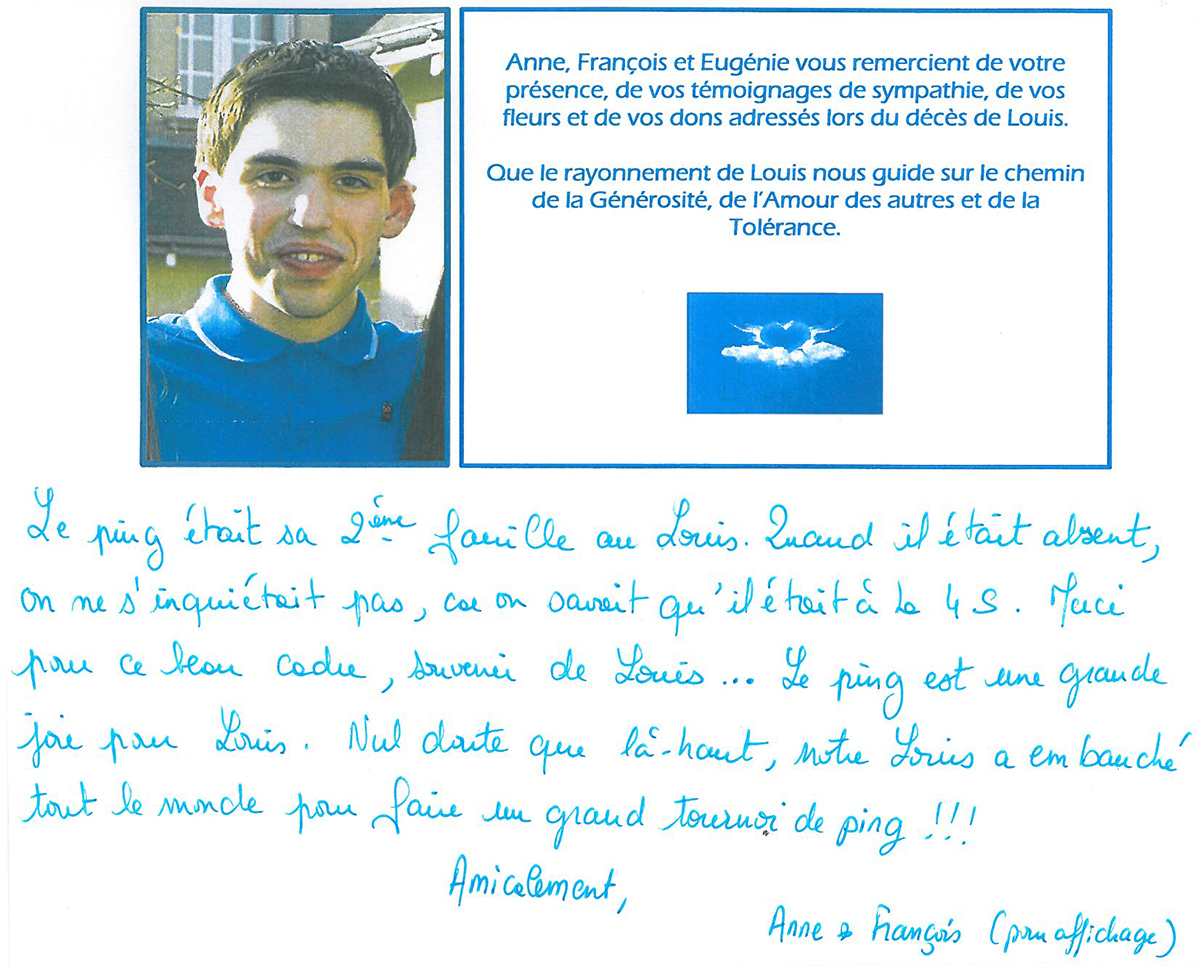 Anne, François et Eugénie vous remercient de votre
présence, de vos témoignages de sympathie, de vos
fleurs et de vos dons adressés lors du décès de Louis.
Que le rayonnement de Louis nous guide sur le chemin
de la Générosité, de l'Amour des autres et de la
Tolérance.
Le ping était sa 2ème famille au Louis. Quand il était absent,
on ne s'inquiétait pas, car on savait qu'il était à la 4 S. Merci
pour ce beau cadre, souvenir de Louis ... Le ping est une grande
joie pour Louis. Nul doute que là-haut, notre Louis a embauché
tout le monde pour faire un grand tournoi de ping !!!
Amicalement,
Anne & François (pour affichage)